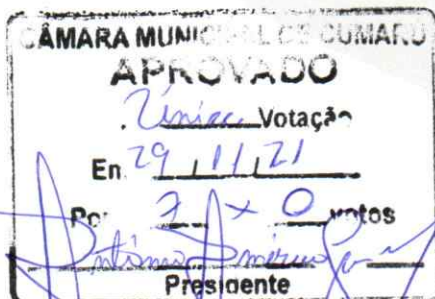 CÂMARA MUNICIPAL DE CUMARU
APROVADO
Única Votação
Em 29 / 11 / 21
Por 7 x 0 votos
Antônio Américo
Presidente